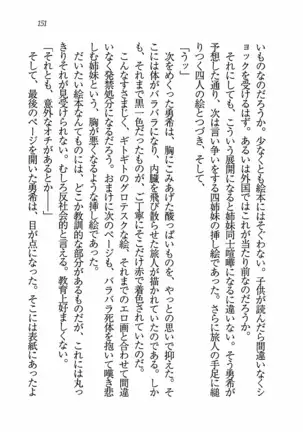 151
いものなのだろうか。少なくとも絵本にはそぐわない。子供が読んだら間違いなくシ
ョックを受けるはず。あるいは外国ではこれが当たり前なのだろうか。
それにしても、こういう展開になると姉妹同士喧嘩になるに違いない。そう勇希が
予想した通り、次は言い争いをする四姉妹の挿し絵であった。さらに旅人の手足に縋
りつく四人の絵とつづき、そして、
「うッ」
次をめくった勇希は、胸にこみあげた酸っぱいものを、やっとの思いで抑えた。そ
こには体がバラバラになり、内臓を飛び散らせた旅人が描かれていたのだ。しかもそ
れまで黒一色だったものが、ご丁寧にそこだけ赤で着色されていたのだ。
こんなすさまじく、ギトギトのグロテスクな絵、それまでのエロ画と合わせて間違
いなく発禁処分になるだろう。おまけに次のページも、バラバラ死体を抱いて嘆き悲
しむ姉妹という、胸が悪くなるような挿し絵であった。
だいたい絵本なんてものには、どこか教訓的な部分があるものだが、これには丸っ
きりそれが見受けられない。むしろ反社会的と言える。教育上好ましくない。
「それとも、意外なオチがあるとか――」
そして、最後のページを開いた勇希は、目が点になった。そこには表紙にあったよ